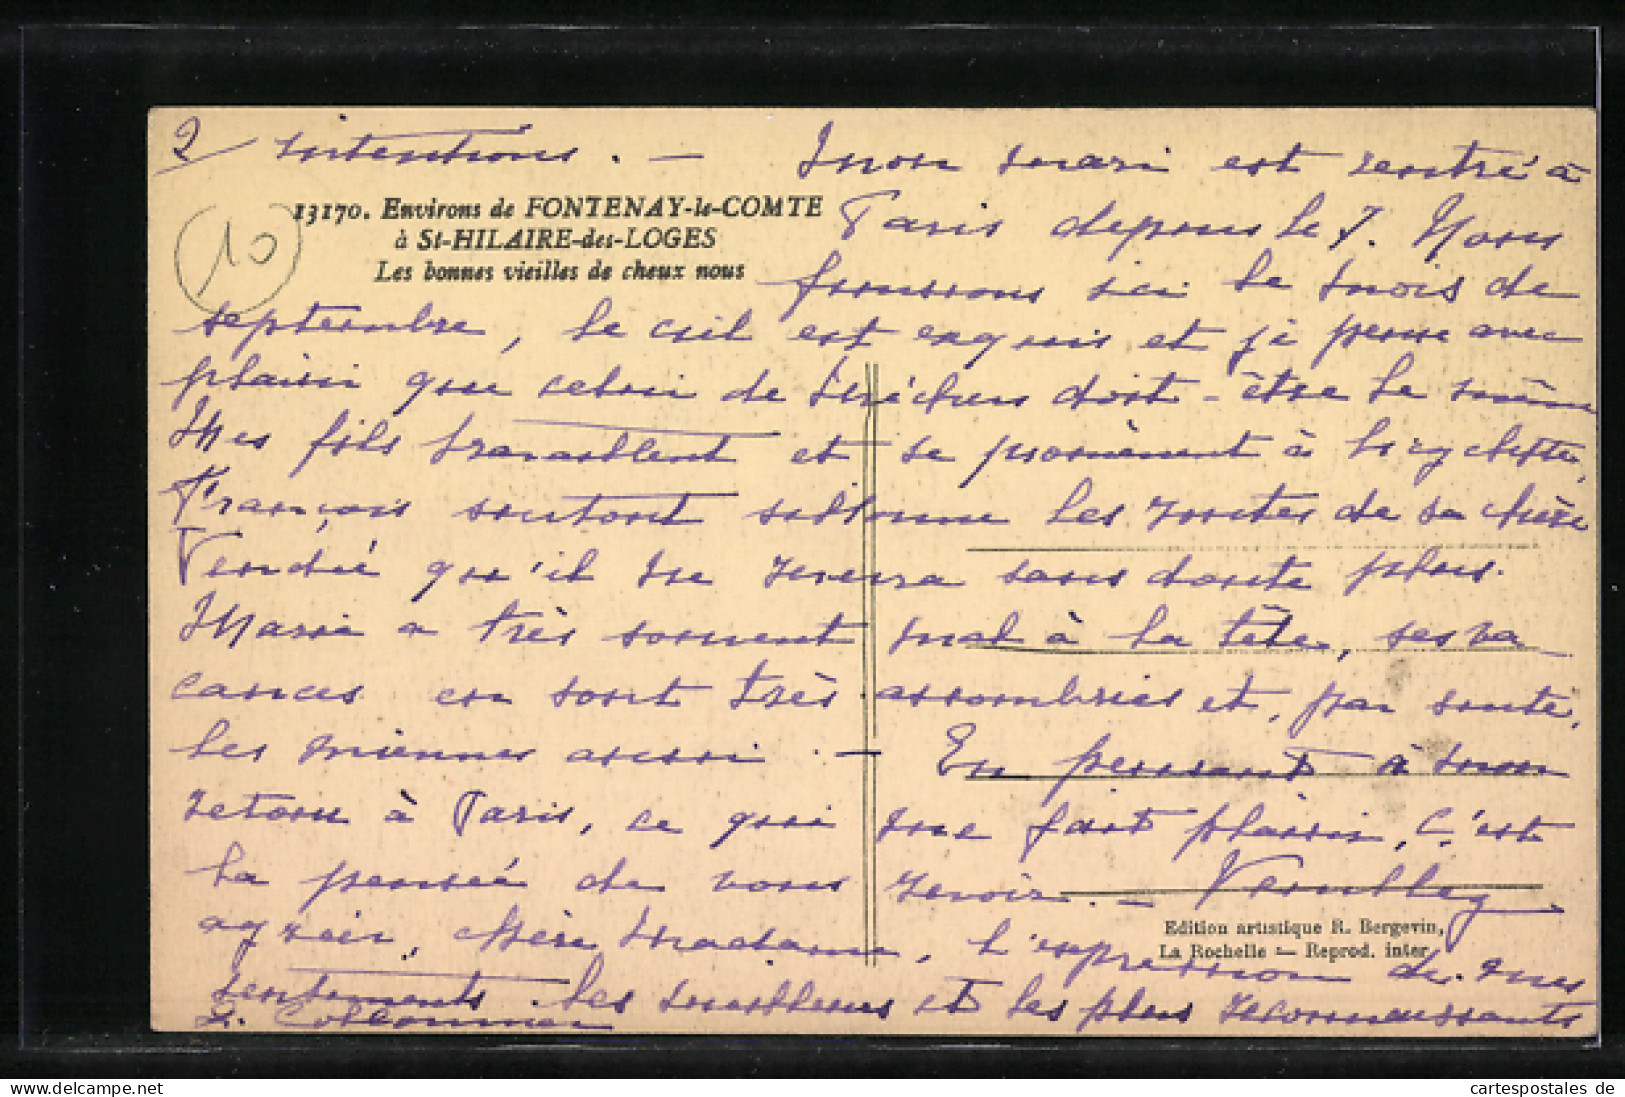 2/ intentions. — mon mari est rentré à
13170. Environs de FONTENAY-le-COMTE
à St-HILAIRE-des-LOGES
Les bonnes vieilles de cheux nous
10
Paris depuis le 7. Nous
finissons ici le mois de
septembre, le ciel est exquis et je pense avec
plaisir que celui de doit-être le même
Mes fils travaillent et se promènent à bicyclette,
François surtout sillonne les routes de sa chère
Vendée qu'il ne verra sans doute plus.
Marie a très souvent mal à la tête, ses va
cances en sont très assombries et, par suite,
les miennes aussi. — En pensant à mon
retour à Paris, ce qui me fait plaisir, c'est
la pensée de vous revoir. — Veuillez
agréer, chère Madame, l'expression de mes
sentiments les meilleurs et les plus reconnaissants
Edition artistique R. Bergevin,
La Rochelle — Reprod. inter.
cartespostales de